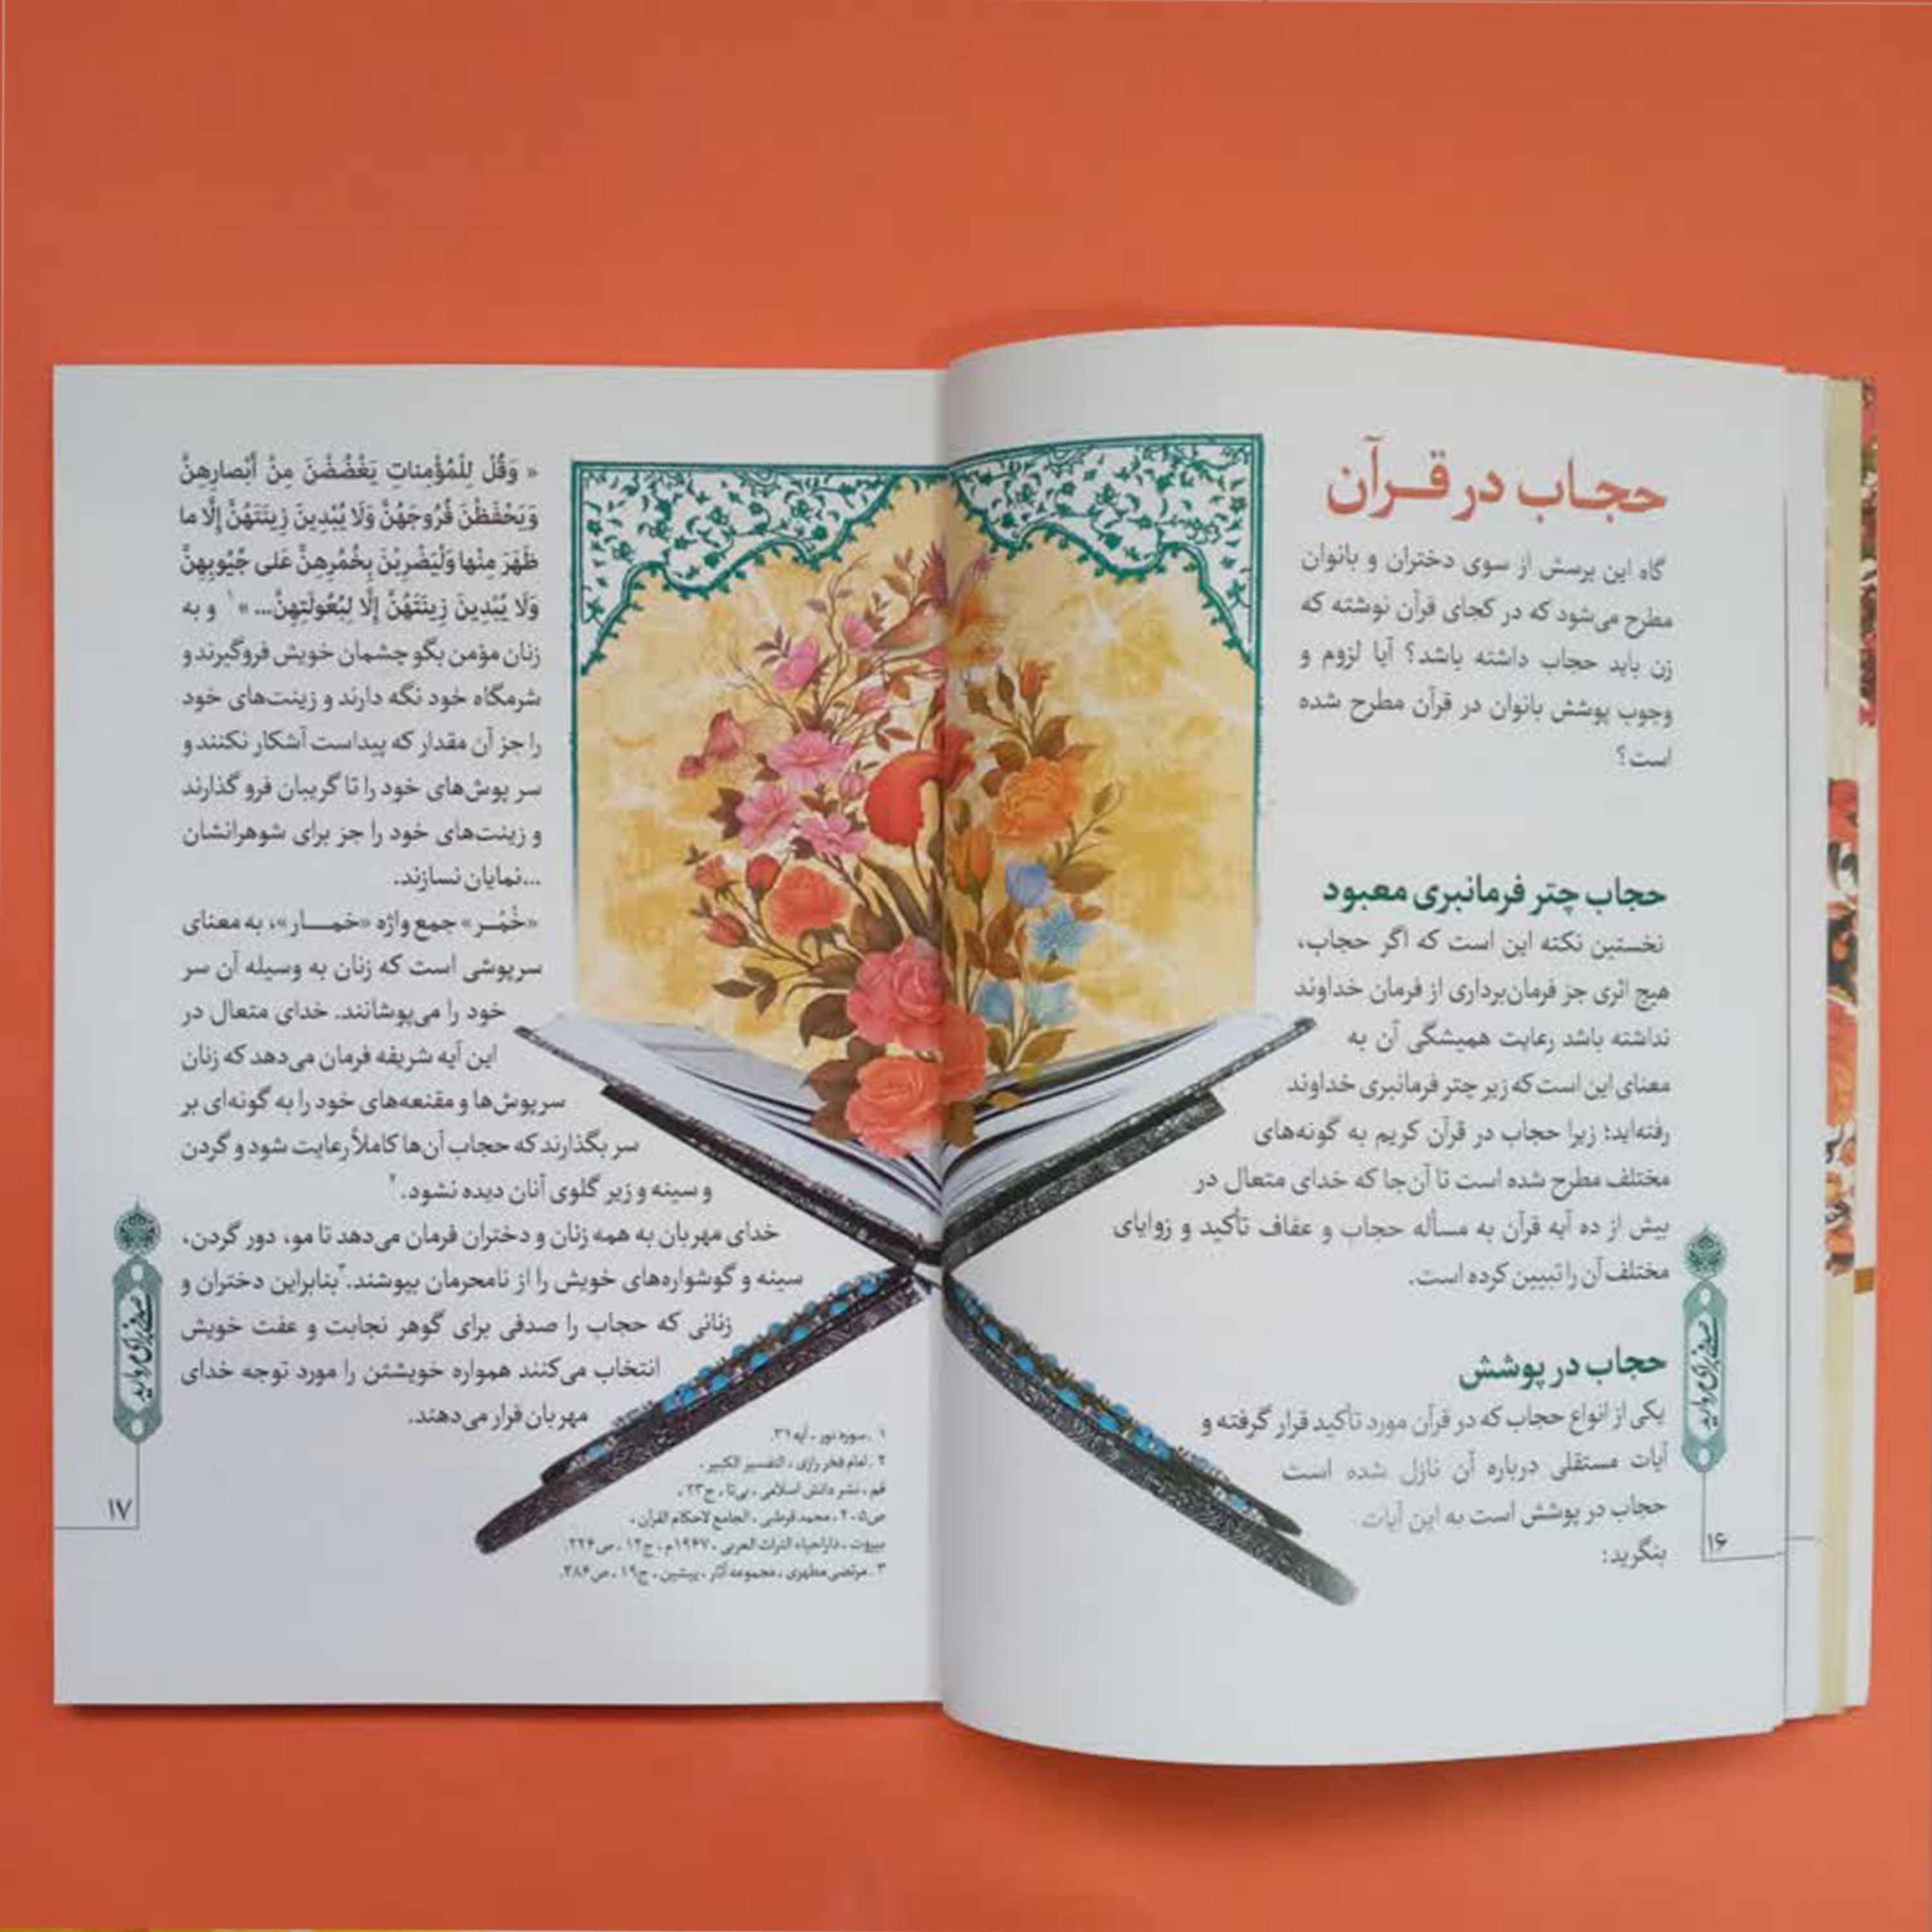 حجاب در قرآن
گاه این پرسش از سوی دختران و بانوان
مطرح می‌شود که در کجای قرآن نوشته که
زن باید حجاب داشته باشد؟ آیا لزوم و
وجوب پوشش بانوان در قرآن مطرح شده
است؟
حجاب چتر فرمانبری معبود
نخستین نکته این است که اگر حجاب،
هیچ اثری جز فرمان‌برداری از فرمان خداوند
نداشته باشد رعایت همیشگی آن به
معنای این است که زیر چتر فرمانبری خداوند
رفته‌اید؛ زیرا حجاب در قرآن کریم به گونه‌های
مختلف مطرح شده است تا آن‌جا که خدای متعال در
بیش از ده آیه قرآن به مسأله حجاب و عفاف تأکید و زوایای
مختلف آن را تبیین کرده است.
حجاب در پوشش
یکی از انواع حجاب که در قرآن مورد تأکید قرار گرفته و
آیات مستقلی درباره آن نازل شده است
حجاب در پوشش است به این آیات
بنگرید:
صدفی برای مروارید
۱۶
« وَقُلْ لِلْمُؤْمِناتِ یَغْضُضْنَ مِنْ أَبْصارِهِنَّ
وَیَحْفَظْنَ فُرُوجَهُنَّ وَلَا یُبْدِینَ زِینَتَهُنَّ إِلَّا ما
ظَهَرَ مِنْها وَلْیَضْرِبْنَ بِخُمُرِهِنَّ عَلی جُیُوبِهِنَّ
وَلَا یُبْدِینَ زِینَتَهُنَّ إِلَّا لِبُعُولَتِهِنَّ... »۱ و به
زنان مؤمن بگو چشمان خویش فروگیرند و
شرمگاه خود نگه دارند و زینت‌های خود
را جز آن مقدار که پیداست آشکار نکنند و
سر پوش‌های خود را تا گریبان فرو گذارند
و زینت‌های خود را جز برای شوهرانشان
...نمایان نسازند.
«خُمُـر» جمع واژه «خمـــار»، به معنای
سرپوشی است که زنان به وسیله آن سر
خود را می‌پوشانند. خدای متعال در
این آیه شریفه فرمان می‌دهد که زنان
سرپوش‌ها و مقنعه‌های خود را به گونه‌ای بر
سر بگذارند که حجاب آن‌ها کاملاً رعایت شود و گردن
و سینه و زیر گلوی آنان دیده نشود.۲
خدای مهربان به همه زنان و دختران فرمان می‌دهد تا مو، دور گردن،
سینه و گوشواره‌های خویش را از نامحرمان بپوشند.۳بنابراین دختران و
زنانی که حجاب را صدفی برای گوهر نجابت و عفت خویش
انتخاب می‌کنند همواره خویشتن را مورد توجه خدای
مهربان قرار می‌دهند.
۱ . سوره نور ، آیه ۳۱.
۲ . امام فخر رازی ، التفسیر الکبیر ،
قم ، نشر دانش اسلامی ، بی‌تا ، ج۲۳ ،
ص۲۰۵ ، محمد قرطبی ، الجامع لاحکام القرآن ،
بیروت ، داراحیاء التراث العربی ، ۱۹۶۷م ، ج۱۲ ، ص۲۲۶.
۳ . مرتضی مطهری ، مجموعه آثار ، پیشین ، ج۱۹ ، ص۴۸۶.
صدفی برای مروارید
۱۷